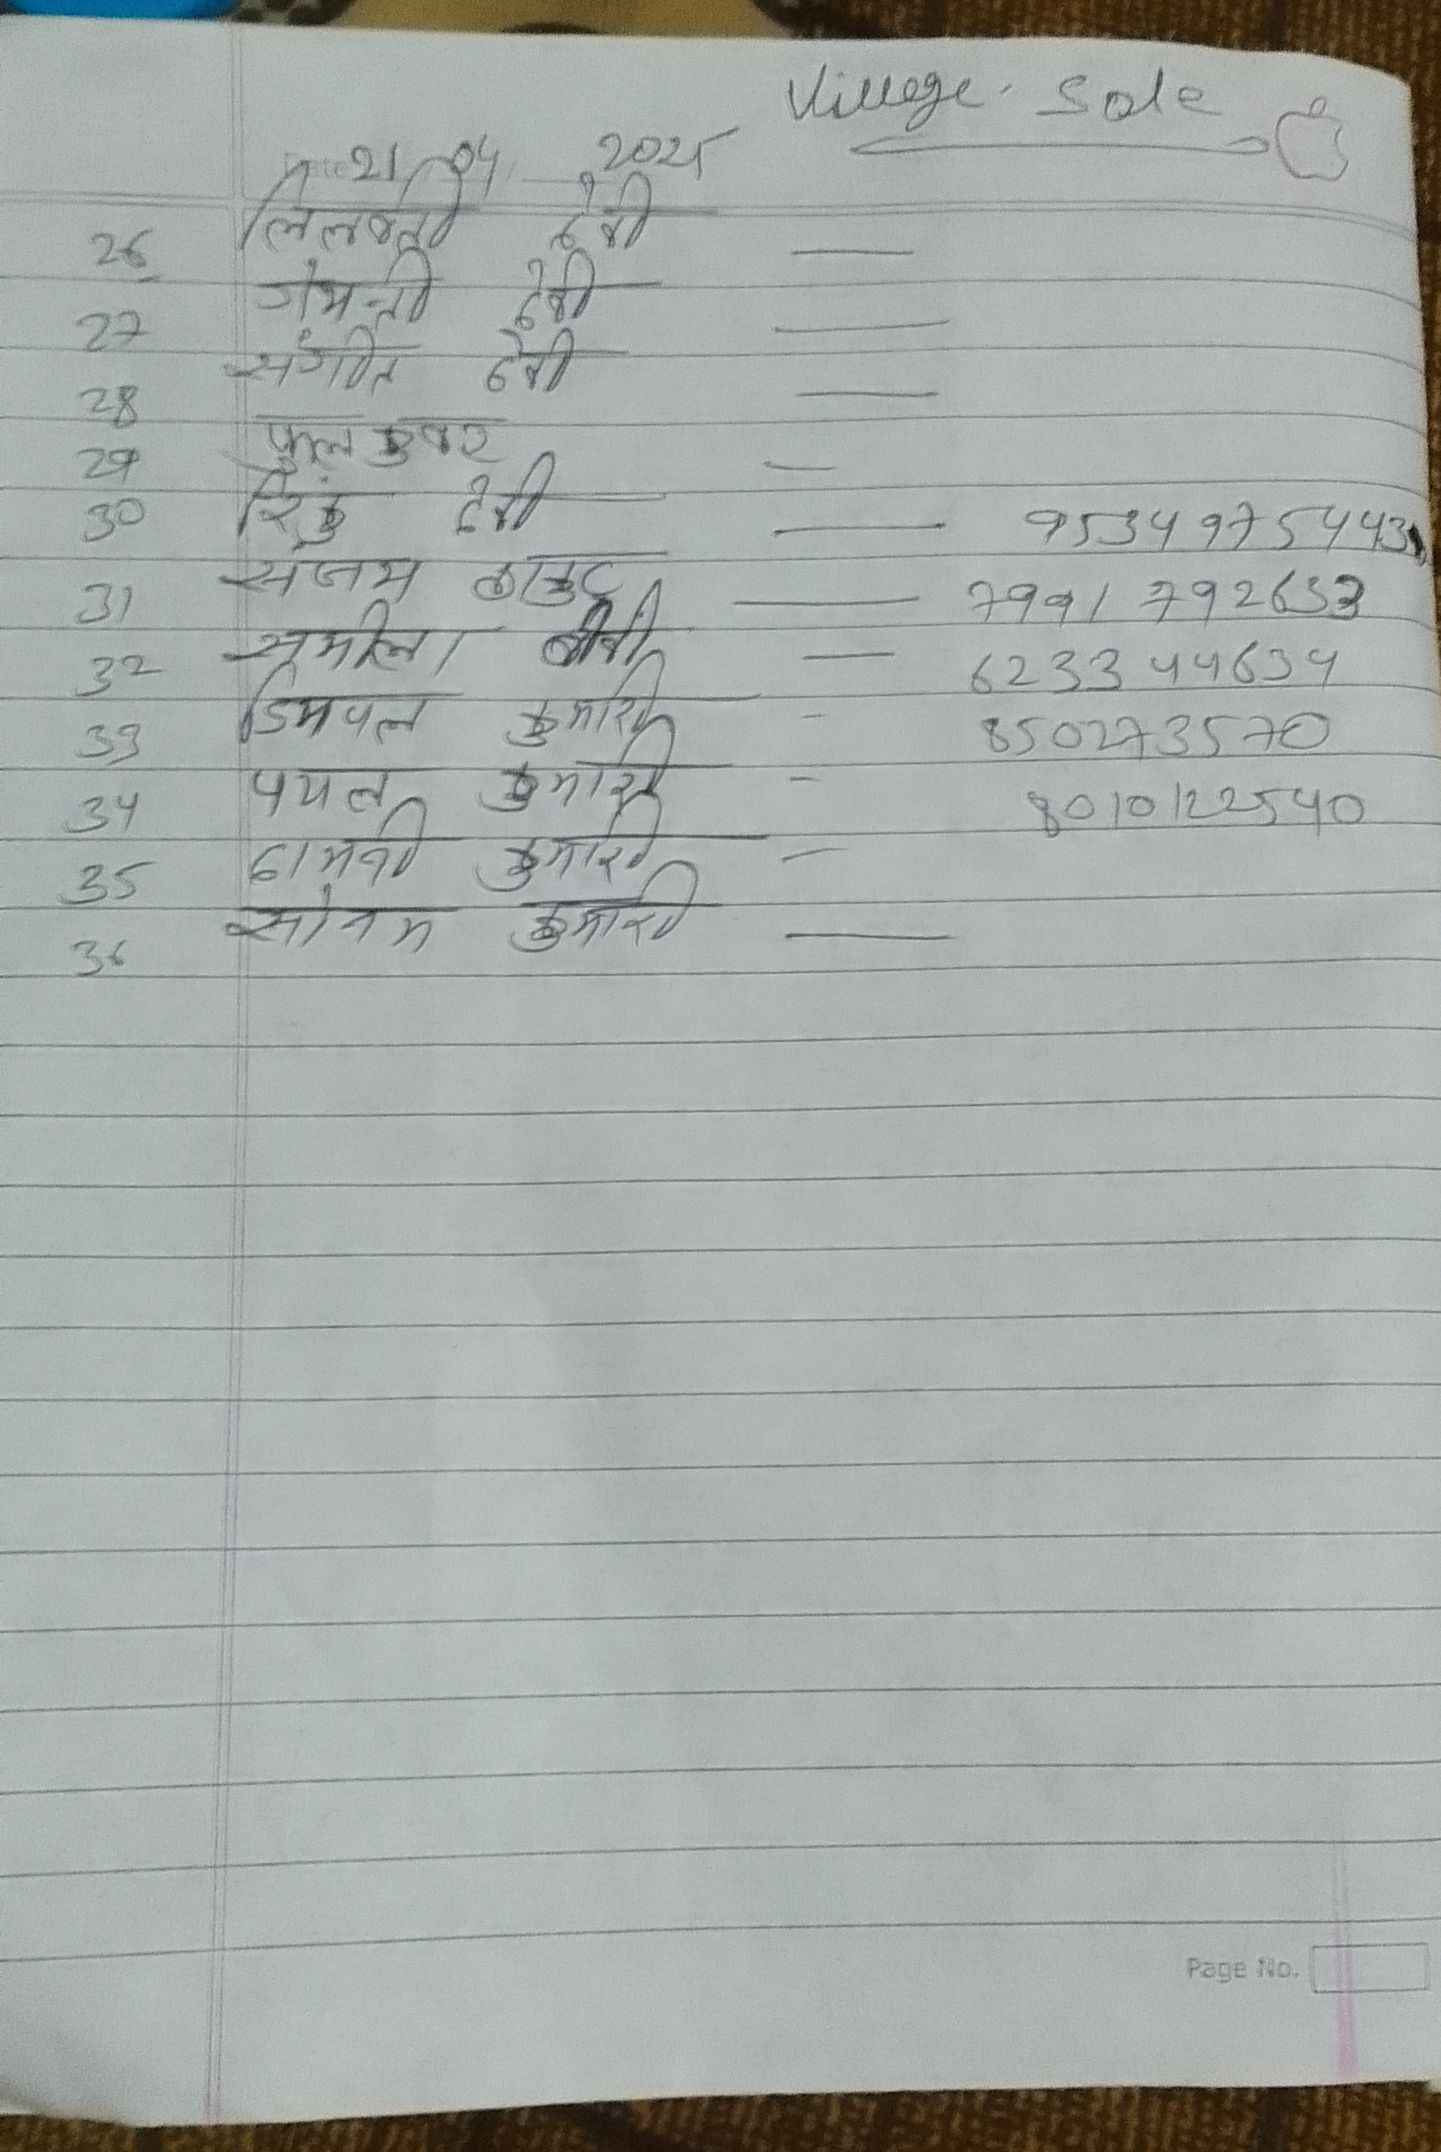 Village. Sole
21/04 2025
26 लिलवती देवी —
27 गोमन्ती देवी —
28 संगीत देवी —
29 फुल कुवर —
30 रिंकु देवी — 9534975443
31 — 7991792633
32 बीबी — 623344634
33 डिमपल कुमारी - 850273570
34 पयल कुमारी - 8010122540
35 दामनी कुमारी -
36 सोनम कुमारी —
Page No.